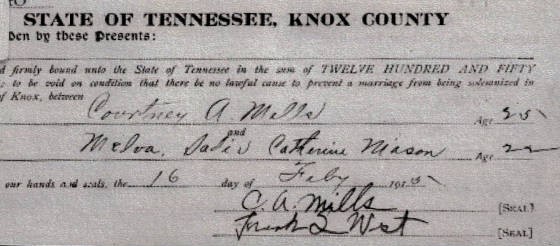 STATE OF TENNESSEE, KNOX COUNTY
by these Presents:
firmly bound unto the State of Tennessee in the sum of TWELVE HUNDRED AND FIFTY
to be void on condition that there be no lawful cause to prevent a marriage from being solemnized in
of Knox, between
Courtney A Mills Age 25
and
Melva, Catherine Mason Age 22
our hands and seals, the 16 day of Feby 191
C. A. Mills [SEAL]
Frank L West [SEAL]